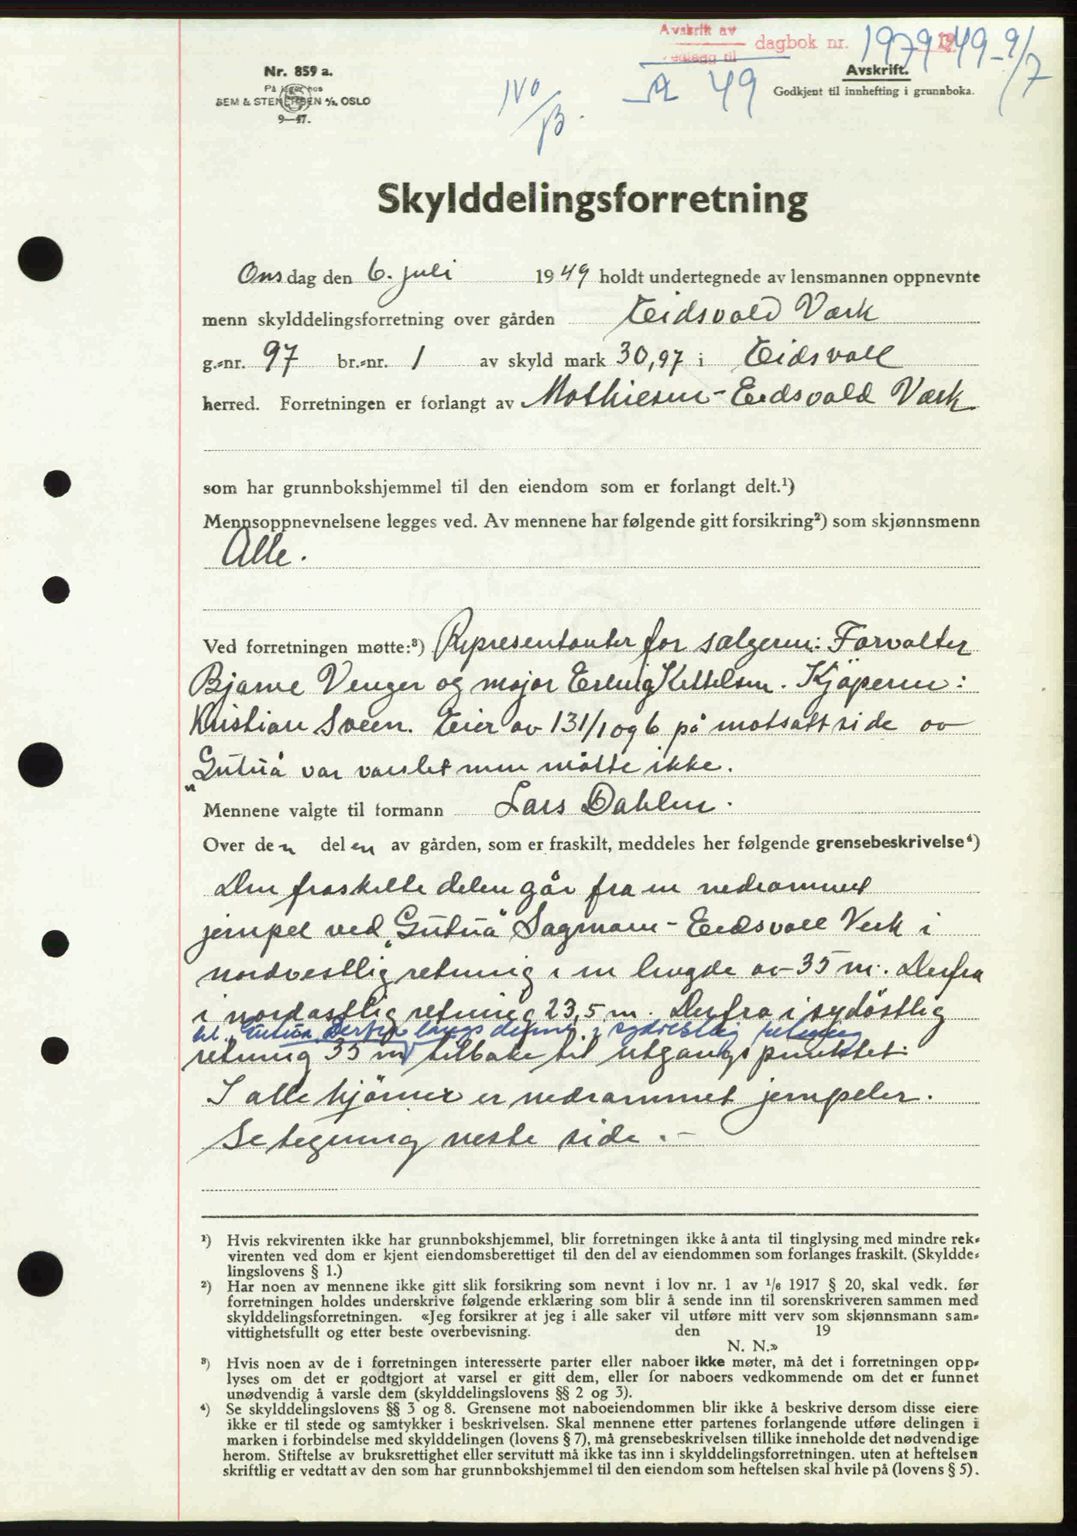 Avskrift av
vedlegg til
dagbok nr. 1979 1949 9/7
A 49
IVO/B.
Nr. 859 a.
På lager hos
SEM & STENERSEN A/S, OSLO
9—47.
Avskrift.
Godkjent til innhefting i grunnboka.
Skylddelingsforretning
Onsdag den 6. juli 1949 holdt undertegnede av lensmannen oppnevnte
menn skylddelingsforretning over gården Eidsvold Værk
g.-nr. 97 br.-nr. 1 av skyld mark 30,97 i Eidsvoll
herred. Forretningen er forlangt av Mathiesen-Eidsvold Værk
som har grunnbokshjemmel til den eiendom som er forlangt delt.¹)
Mennsoppnevnelsene legges ved. Av mennene har følgende gitt forsikring²) som skjønnsmenn
Alle.
Ved forretningen møtte:³) Representanter for selgeren: Forvalter
Bjarne Venger og major Erling Kittelsen. Kjöperen:
Kristian Sveen. Eier av 131/1 og 6 på motsatt side av
"Gutuå var varslet men mötte ikke.
Mennene valgte til formann Lars Dahlen.
Over den delen av gården, som er fraskilt, meddeles her følgende grensebeskrivelse⁴)
Den fraskilte delen går fra en nedrammet
jernpel ved "Gutuå" Sagmoen-Eidsvoll Verk i
nordvestlig retning i en lengde av 35 m. Derfra
i nordöstlig retning 23,5 m. Derfra i sydöstlig
til Gutua. Derfra langs denne i sydvestlig retning
retning 35 m tilbake til utgangspunktet.
I alle hjörner er nedrammet jernpeler.
Se tegning neste side.-
¹) Hvis rekvirenten ikke har grunnbokshjemmel, blir forretningen ikke å anta til tinglysing med mindre rek-
virenten ved dom er kjent eiendomsberettiget til den del av eiendommen som forlanges fraskilt. (Skyldde-
lingslovens § 1.)
²) Har noen av mennene ikke gitt slik forsikring som nevnt i lov nr. 1 av 1/6 1917 § 20, skal vedk. før
forretningen holdes underskrive følgende erklæring som blir å sende inn til sorenskriveren sammen med
skylddelingsforretningen. «Jeg forsikrer at jeg i alle saker vil utføre mitt verv som skjønnsmann sam-
vittighetsfullt og etter beste overbevisning. den 19
N. N.»
³) Hvis noen av de i forretningen interesserte parter eller naboer ikke møter, må det i forretningen opp-
lyses om det er godtgjort at varsel er gitt dem, eller for naboers vedkommende om det er funnet
unødvendig å varsle dem (skylddelingslovens §§ 2 og 3).
⁴) Se skylddelingslovens §§ 3 og 8. Grensene mot naboeiendommen blir ikke å beskrive dersom disse eiere
ikke er til stede og samtykker i beskrivelsen. Skal mennene etter partenes forlangende utføre delingen i
marken i forbindelse med skylddelingen (lovens § 7), må grensebeskrivelsen tillike inneholde det nødvendige
herom. Stiftelse av bruksrettighet eller servitutt må ikke tas inn i skylddelingsforretningen. uten at heftelsen
skriftlig er vedtatt av den som har grunnbokshjemmel til den eiendom som heftelsen skal hvile på (lovens § 5).